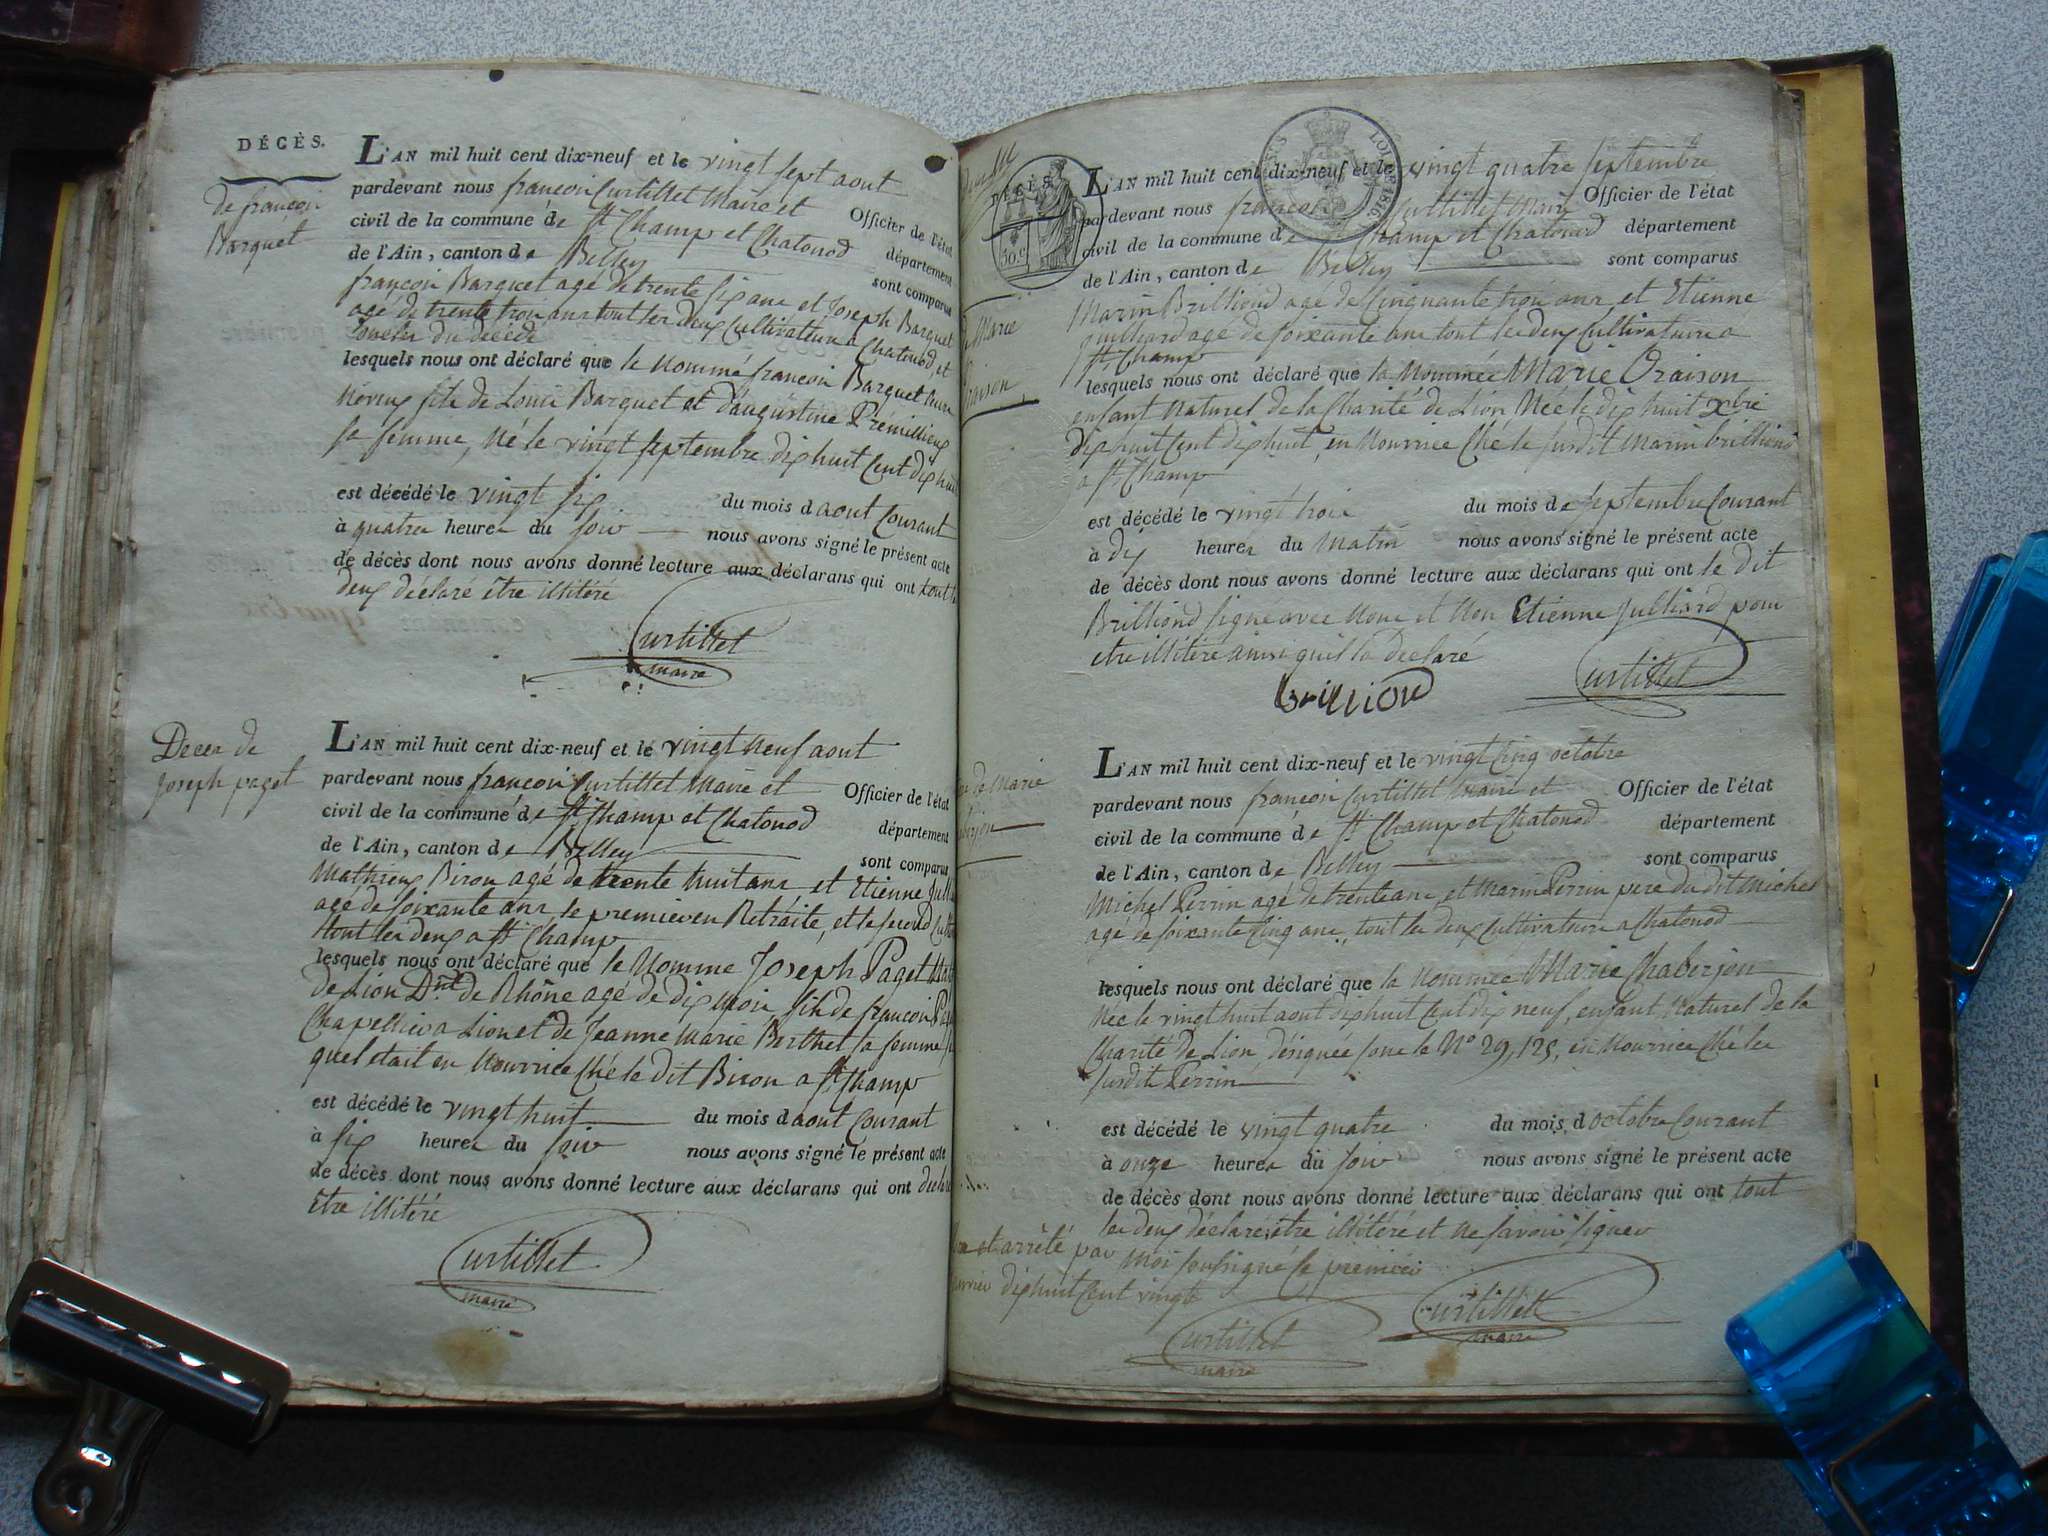 DÉCÈS.
de françois
Barquet
L'AN mil huit cent dix-neuf et le vingt sept aout
pardevant nous françois Curtillet Maire et Officier de l'état
civil de la commune de St Champ et Chatonod département
de l'Ain, canton de Belley sont comparus
françois Barquet agé de trente six ans et Joseph Barquet
agé de trente trois ans tout les deux Cultivateurs a Chatonod, et
oncles du décédé
lesquels nous ont déclaré que le Nommé françois Barquet
fils de Louis Barquet et d'augustine Prémillieux
sa femme, Né le vingt septembre dix huit Cent dix huit
est décédé le vingt six du mois d aout Courant
à quatre heures du soir nous avons signé le présent acte
de décès dont nous avons donné lecture aux déclarans qui ont tout les
deux déclaré être illitéré
Curtillet
maire
Deces de
Joseph paget
L'AN mil huit cent dix-neuf et le vingt Neuf aout
pardevant nous françois Curtillet Maire et Officier de l'état
civil de la commune de St Champ et Chatonod département
de l'Ain, canton de Belley sont comparus
Mathieu Biron agé de trente huit ans et Etienne
agé de soixante ans le premier en Retraite, et le second
tout les deux a St Champ
lesquels nous ont déclaré que le Nommé Joseph Paget
de Lion Dmt de Rhône agé de dix mois, fils de françois
Chapellier a Lion et de Jeanne Marie Berthet sa femme
quel etait en Nourrice Ché le dit Biron a St Champ
est décédé le vingt huit du mois d aout Courant
à six heures du soir nous avons signé le présent acte
de décès dont nous avons donné lecture aux déclarans qui ont déclaré
Etre illitéré
Curtillet
maire
DÉCÈS
50 c
LOI DE 1816
Marie
L'AN mil huit cent dix-neuf et le vingt quatre septembre
pardevant nous françois Curtillet Maire Officier de l'état
civil de la commune de Champ et Chatonod département
de l'Ain, canton de Belley sont comparus
Marin Brilliond agé de Cinquante trois ans et Etienne
Juilliard agé de soixante ans tout les deux Cultivateurs a
St Champ
lesquels nous ont déclaré que la Nommée Marie Oraison
enfant Naturel de la Charité de Lion Née le dix huit xbre
dix huit Cent dix huit en Nourrice Ché le susdit Marin brilliond
a St Champ
est décédé le vingt trois du mois de septembre Courant
à dix heures du Matin nous avons signé le présent acte
de décès dont nous avons donné lecture aux déclarans qui ont le dit
Brilliond signe avec Nous et Non Etienne Julliard pour
etre illitéré ainsi quil la declaré
brillion Curtillet
de Marie
L'AN mil huit cent dix-neuf et le vingt Cinq octobre
pardevant nous françois Curtillet Maire et Officier de l'état
civil de la commune de St Champ et Chatonod département
de l'Ain, canton de Belley sont comparus
Michel Perrin agé de trente ans, et Marin Perrin pere du dit Michel
agé de soixante Cinq ans, tout les deux Cultivateurs a Chatonod
lesquels nous ont déclaré que la Nommée Marie Chaberjon
Née le vingt huit aout dix huit Cent dix neuf, enfant Naturel de la
Charité de Lion désignée sous le No 29,125, en Nourrice Ché les
susdit Perrin
est décédé le vingt quatre du mois d octobre Courant
à onze heures du soir nous avons signé le présent acte
de décès dont nous avons donné lecture aux déclarans qui ont tout
les deux déclaré etre illitéré et ne savoir signer
et arrêté par moi soussigné le premier
dix huit Cent vingt
Curtillet
maire
Curtillet
maire